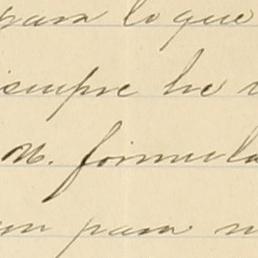 para lo que
siempre he
M. formula
un para